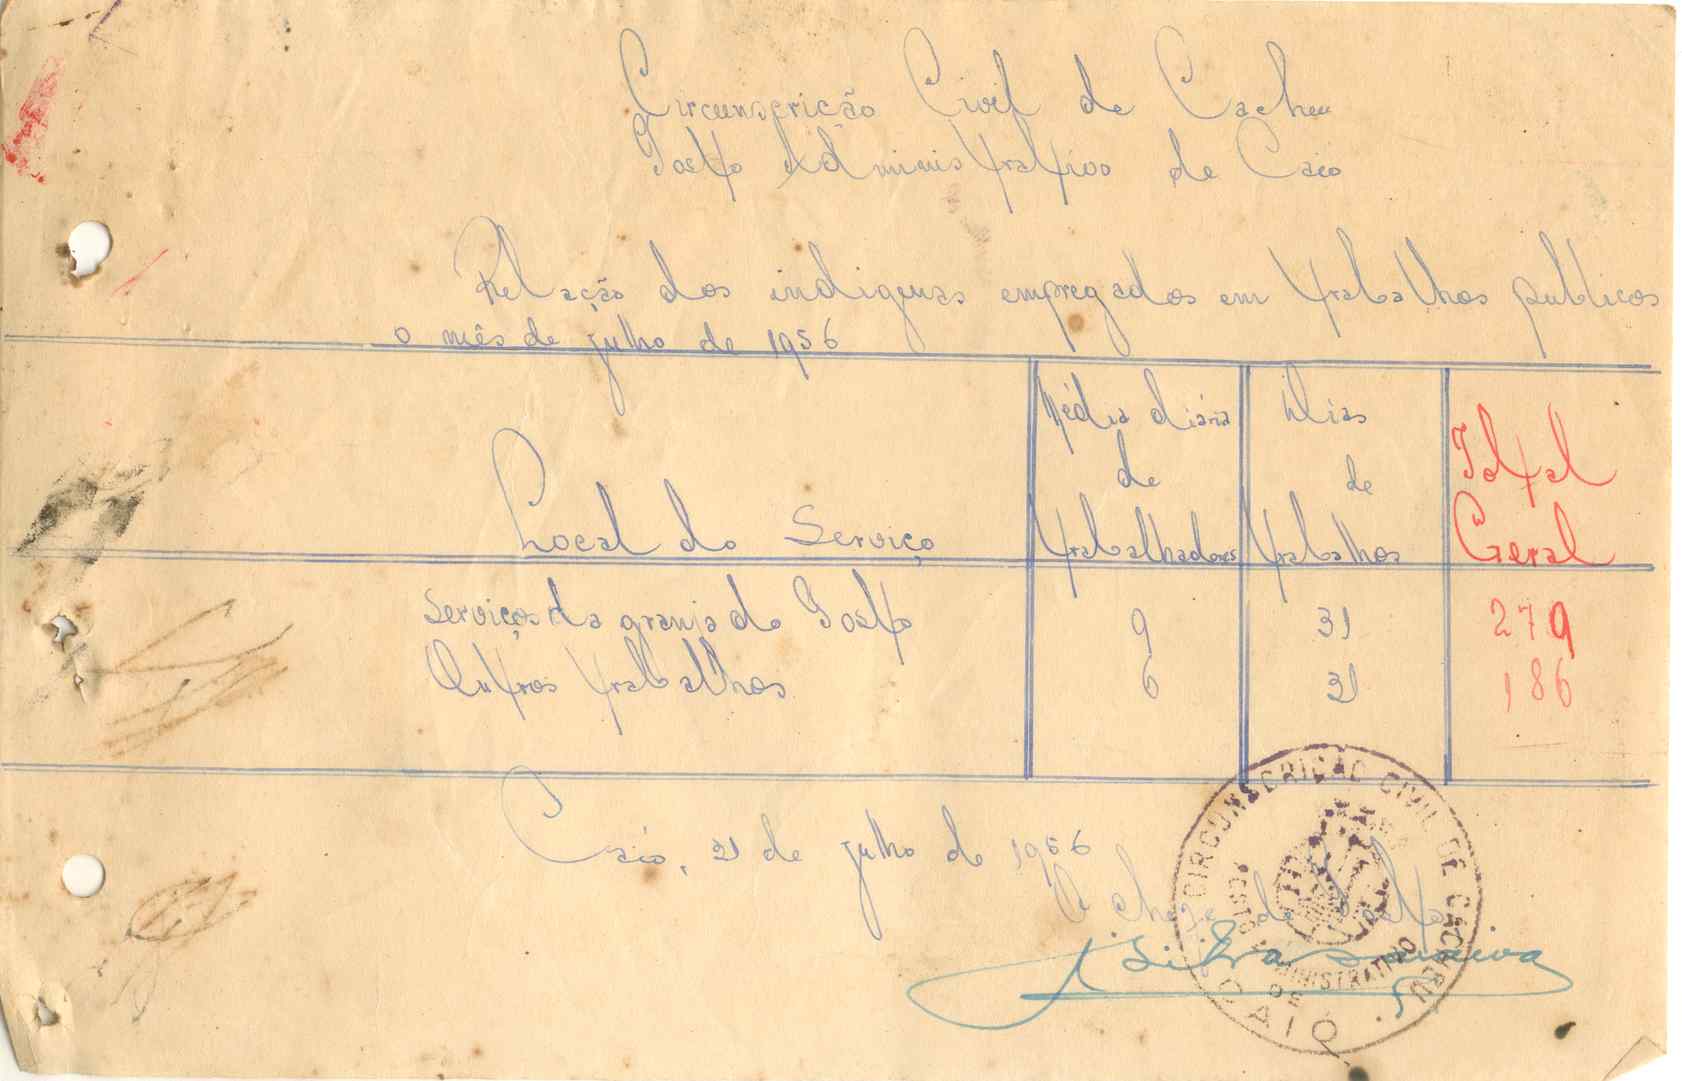 Circunscrição Civil de Cacheu
Posto Administrativo de Caió
Relação dos indigenas empregados em trabalhos publicos
o mês de julho de 1956
Local do Serviço
Média diária
de
trabalhadores
Dias
de
trabalhos
Total
Geral
Serviços da granja do Posto 9 31 279
Outros trabalhos 6 31 186
Caió, 31 de julho de 1956
O chefe do Posto
Silva Saraiva
CIRCUNSCRIÇÃO CIVIL DE CACHEU
POSTO ADMINISTRATIVO
DE
CAIÓ